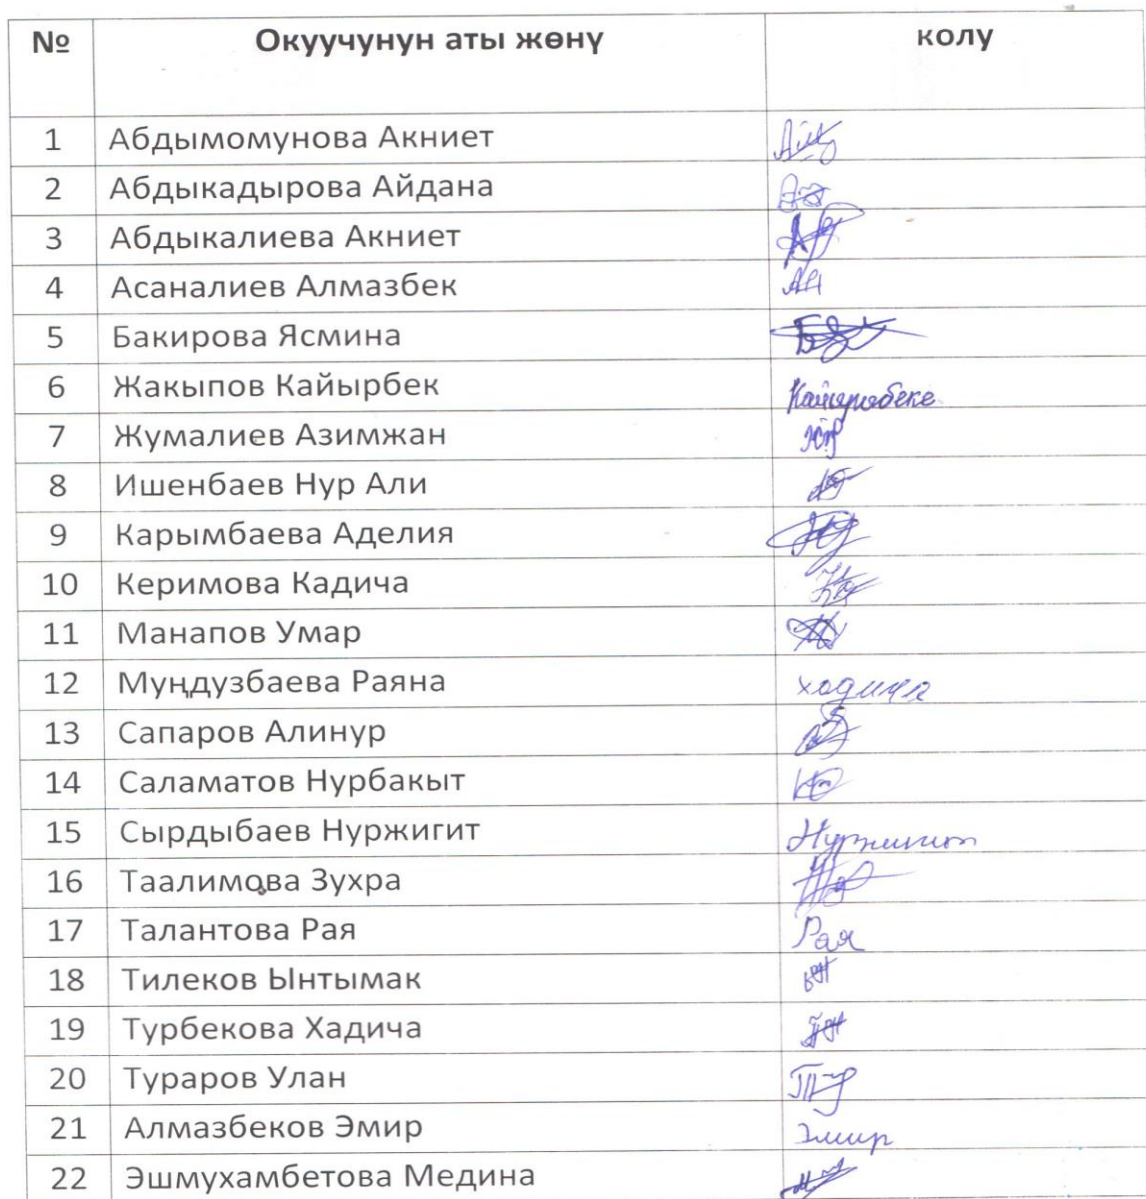 № Окуучунун аты жөнү колу
1 Абдымомунова Акниет
2 Абдыкадырова Айдана
3 Абдыкалиева Акниет
4 Асаналиев Алмазбек
5 Бакирова Ясмина
6 Жакыпов Кайырбек
7 Жумалиев Азимжан
8 Ишенбаев Нур Али
9 Карымбаева Аделия
10 Керимова Кадича
11 Манапов Умар
12 Муңдузбаева Раяна ходича
13 Сапаров Алинур
14 Саламатов Нурбакыт
15 Сырдыбаев Нуржигит Нуржигит
16 Таалимова Зухра
17 Талантова Рая Рая
18 Тилеков Ынтымак
19 Турбекова Хадича
20 Тураров Улан
21 Алмазбеков Эмир Эмир
22 Эшмухамбетова Медина